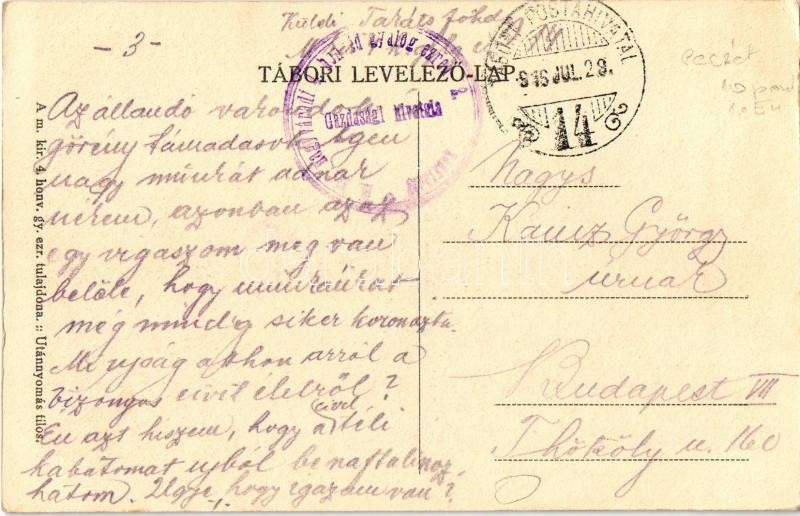 Küldi Taráts földm
- 3 -
TÁBORI LEVELEZŐ-LAP.
Gazdasági hivatala
TÁBORI POSTAHIVATAL
916 JUL. 29.
14
A m. kir. 4. honv. gy. ezr. tulajdona. :: Utánnyomás tilos.
Az állandó
görény támadások igen
nagy munkát adnak
nékem, azonban az az
egy vigaszom meg van
belőle, hogy munkámat
még mindig siker koronázta.
Mi ujság otthon arról a
bizonyos civil életről?
Én azt hiszem, hogy a civil téli
kabátomat ujból be naftalinoz-
hatom. Ugye, hogy igazam van?
Nagys
György
úrnak
Budapest VII
Thököly u. 160